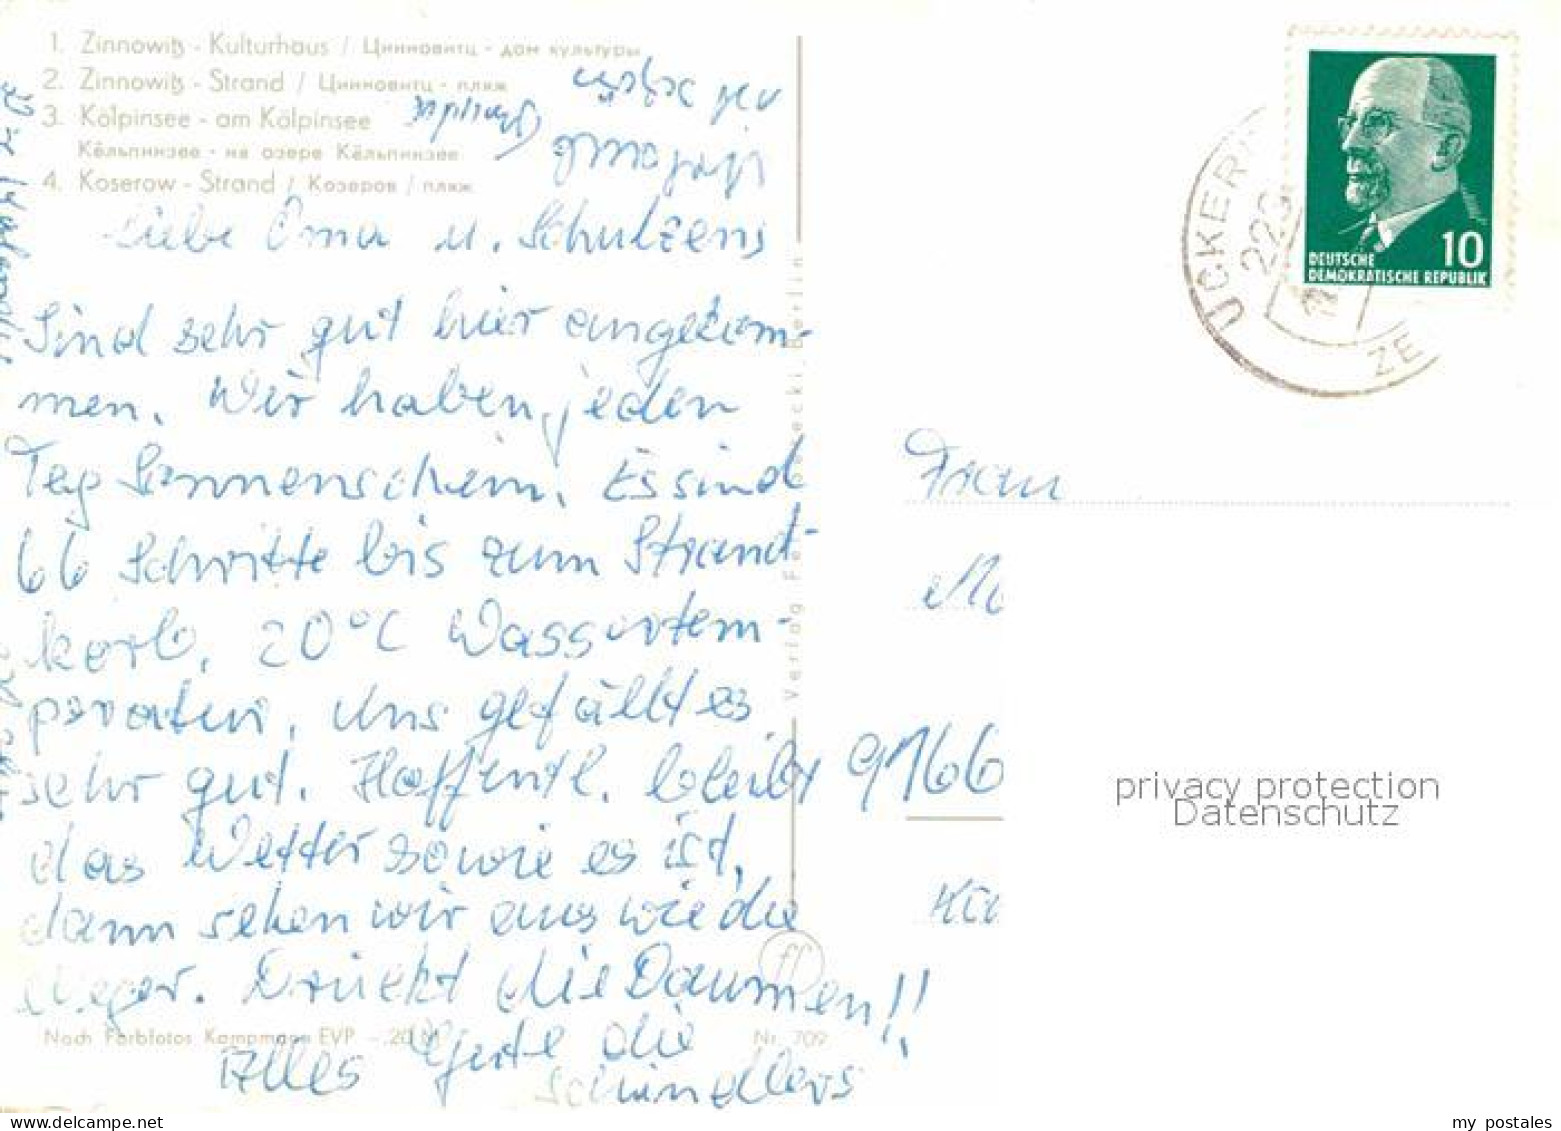 1. Zinnowitz - Kulturhaus / Цинновитц - дом культуры
2. Zinnowitz - Strand / Цинновитц - пляж
3. Kölpinsee - am Kölpinsee
Кёльпинзее - на озере Кёльпинзее
4. Koserow - Strand / Козеров / пляж
Liebe Oma u. Schulzens
Sind sehr gut hier angekom-
men. Wir haben jeden
Tag Sonnenschein. Es sind
66 Schritte bis zum Strand-
korb, 20°C Wassertem-
peratur. Uns gefällt es
sehr gut. Hoffentl. bleibt
das Wetter sowie es ist,
dann sehen wir aus wie die
Neger. Drückt die Daumen!!
Alles Gute die
Schindlers
Nach Farbfotos Kampmann EVP -.20 M
Nr. 709
Berlin
Verlag
ff
UCKERI
ZE
10
DEUTSCHE
DEMOKRATISCHE REPUBLIK
Frau
9166
privacy protection
Datenschutz
my postales